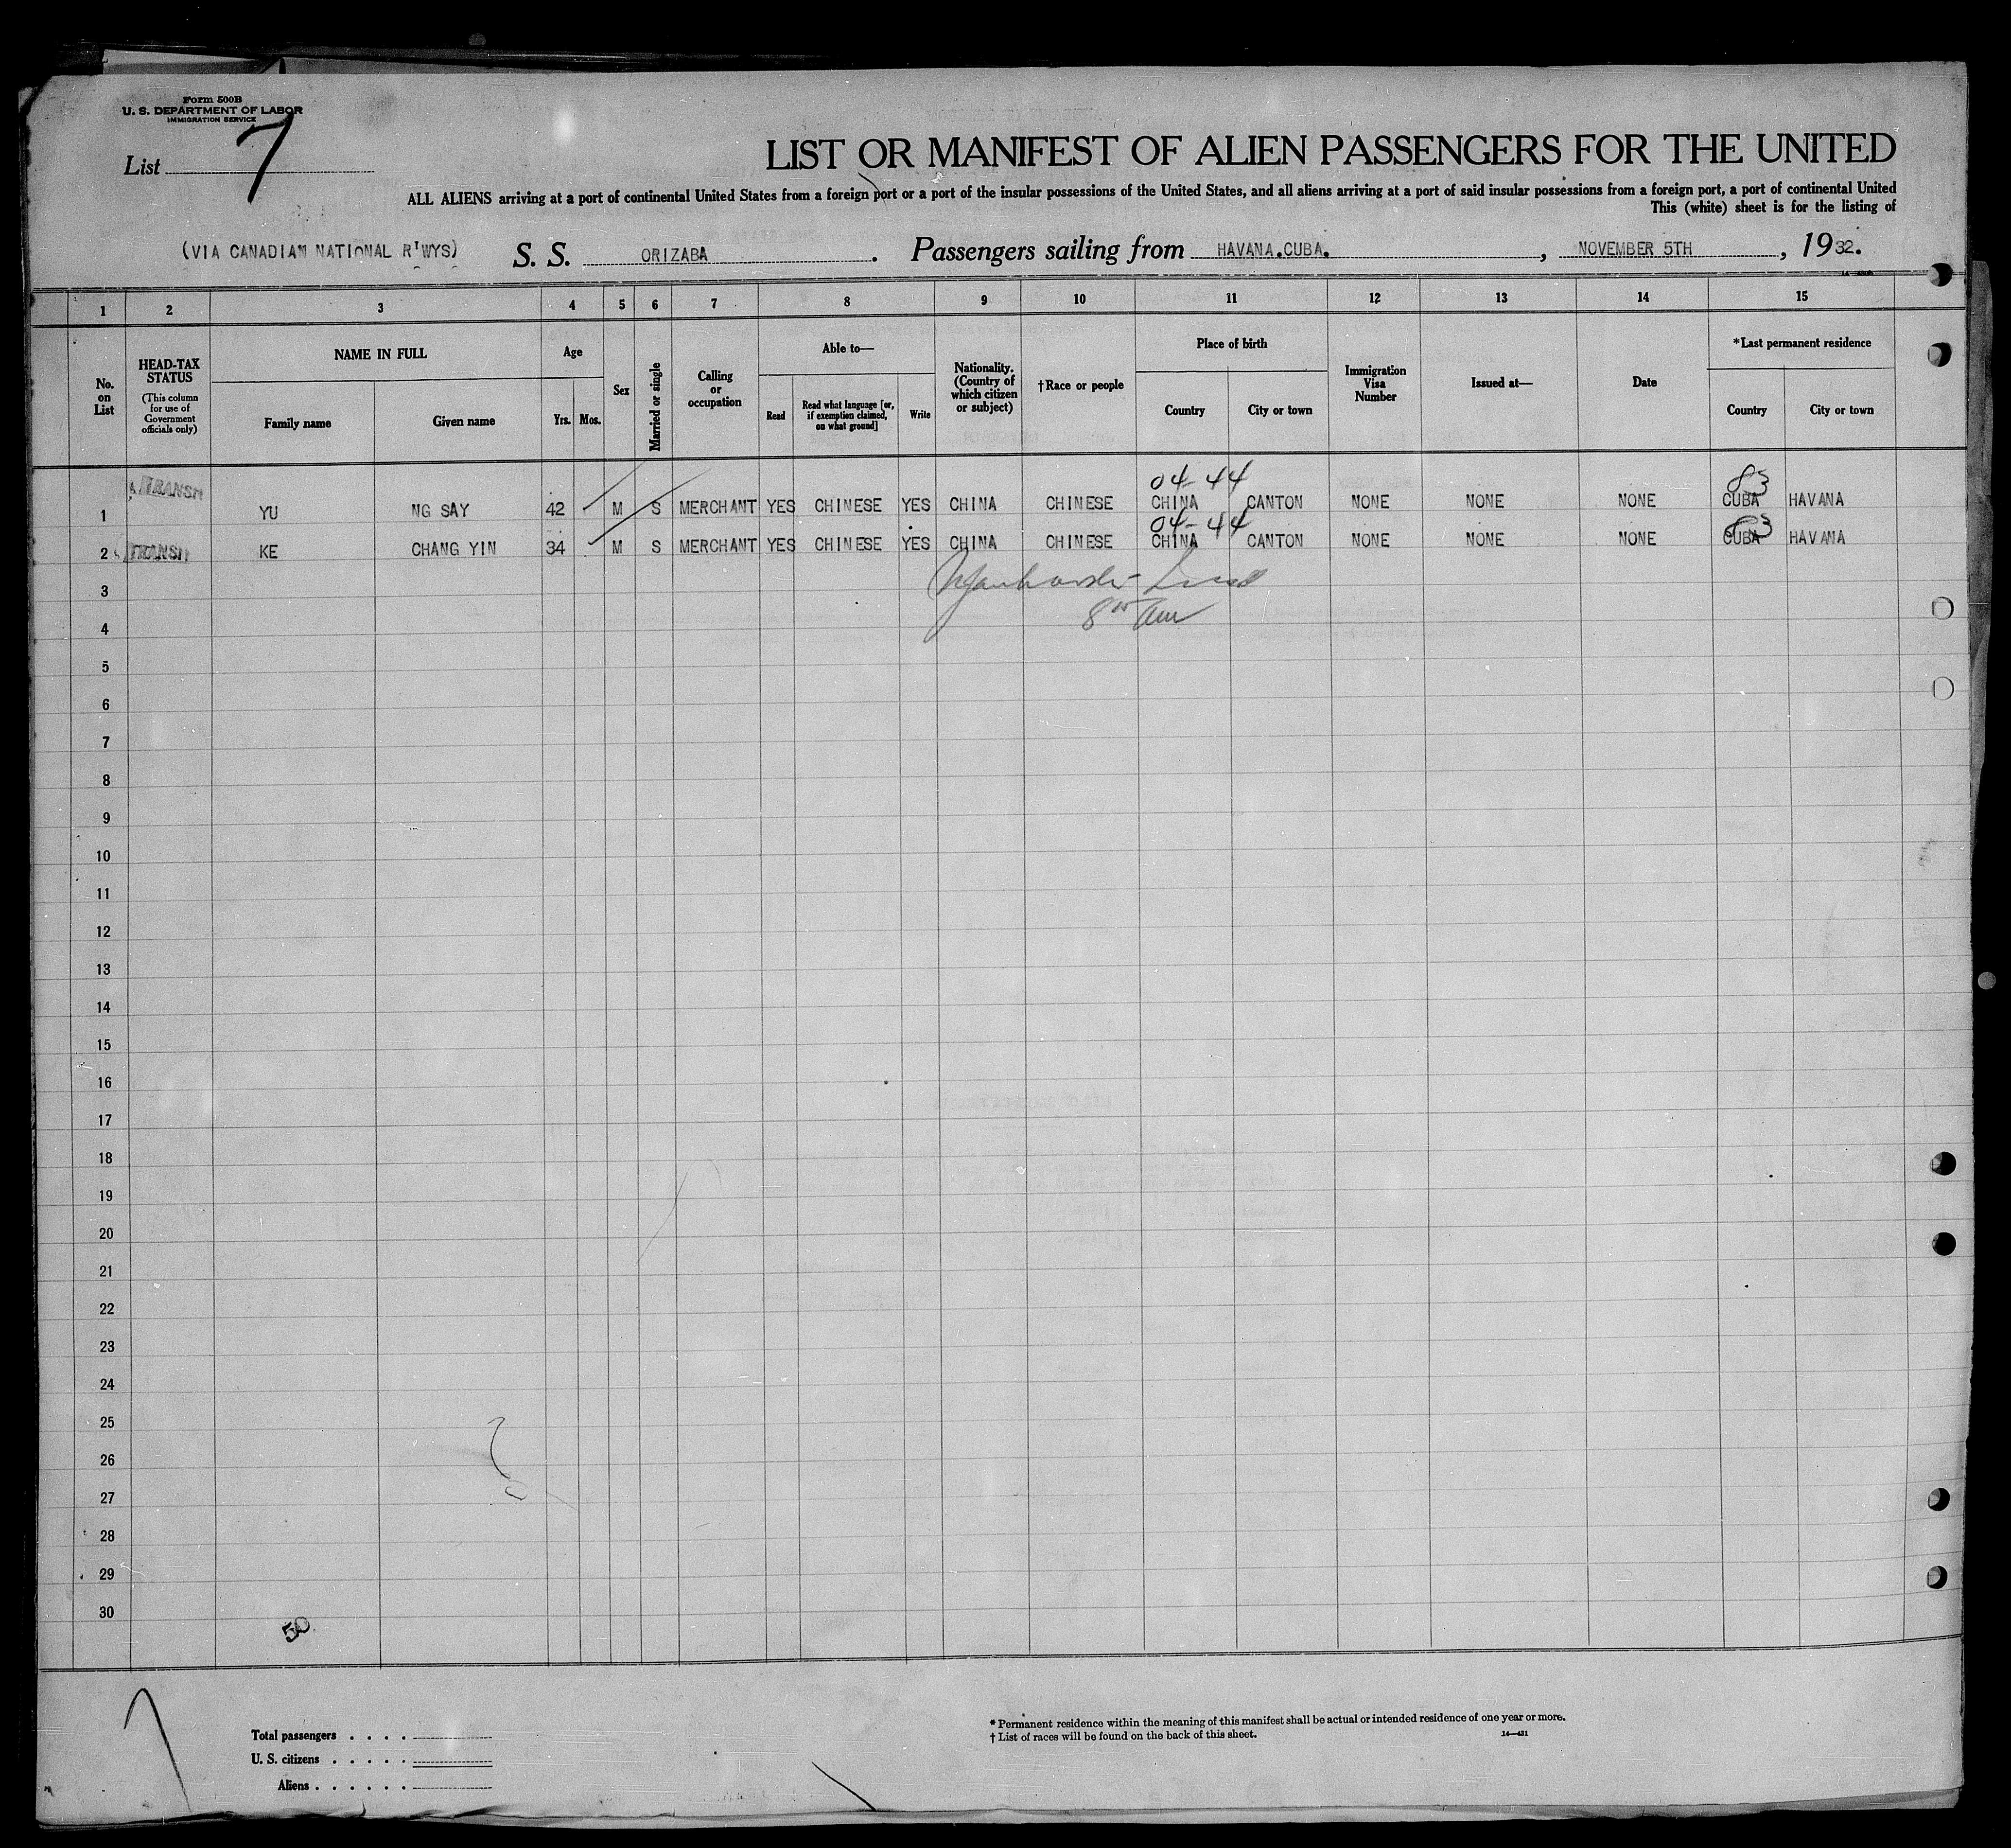 Form 500B
U. S. DEPARTMENT OF LABOR
IMMIGRATION SERVICE
List 7
LIST OR MANIFEST OF ALIEN PASSENGERS FOR THE UNITED
ALL ALIENS arriving at a port of continental United States from a foreign port or a port of the insular possessions of the United States, and all aliens arriving at a port of said insular possessions from a foreign port, a port of continental United
This (white) sheet is for the listing of
(VIA CANADIAN NATIONAL R'WYS) S. S. ORIZABA . Passengers sailing from HAVANA.CUBA. , NOVEMBER 5TH , 1932.
1 2 3 4 5 6 7 8 9 10 11 12 13 14 15
No. on List
HEAD-TAX STATUS
(This column for use of Government officials only)
NAME IN FULL
Family name
Given name
Age
Yrs.
Mos.
Sex
Married or single
Calling or occupation
Able to—
Read
Read what language [or, if exemption claimed, on what ground]
Write
Nationality. (Country of which citizen or subject)
† Race or people
Place of birth
Country
City or town
Immigration Visa Number
Issued at—
Date
*Last permanent residence
Country
City or town
04-44 83
1 TRANSIT YU NG SAY 42 M S MERCHANT YES CHINESE YES CHINA CHINESE CHINA CANTON NONE NONE NONE CUBA HAVANA
04-44 83
2 TRANSIT KE CHANG YIN 34 M S MERCHANT YES CHINESE YES CHINA CHINESE CHINA CANTON NONE NONE NONE CUBA HAVANA
3
4
5
6
7
8
9
10
11
12
13
14
15
16
17
18
19
20
21
22
23
24
25
26
27
28
29
30
50
Total passengers . . . .
U. S. citizens . . . . .
Aliens . . . . . .
* Permanent residence within the meaning of this manifest shall be actual or intended residence of one year or more.
† List of races will be found on the back of this sheet. 14—421